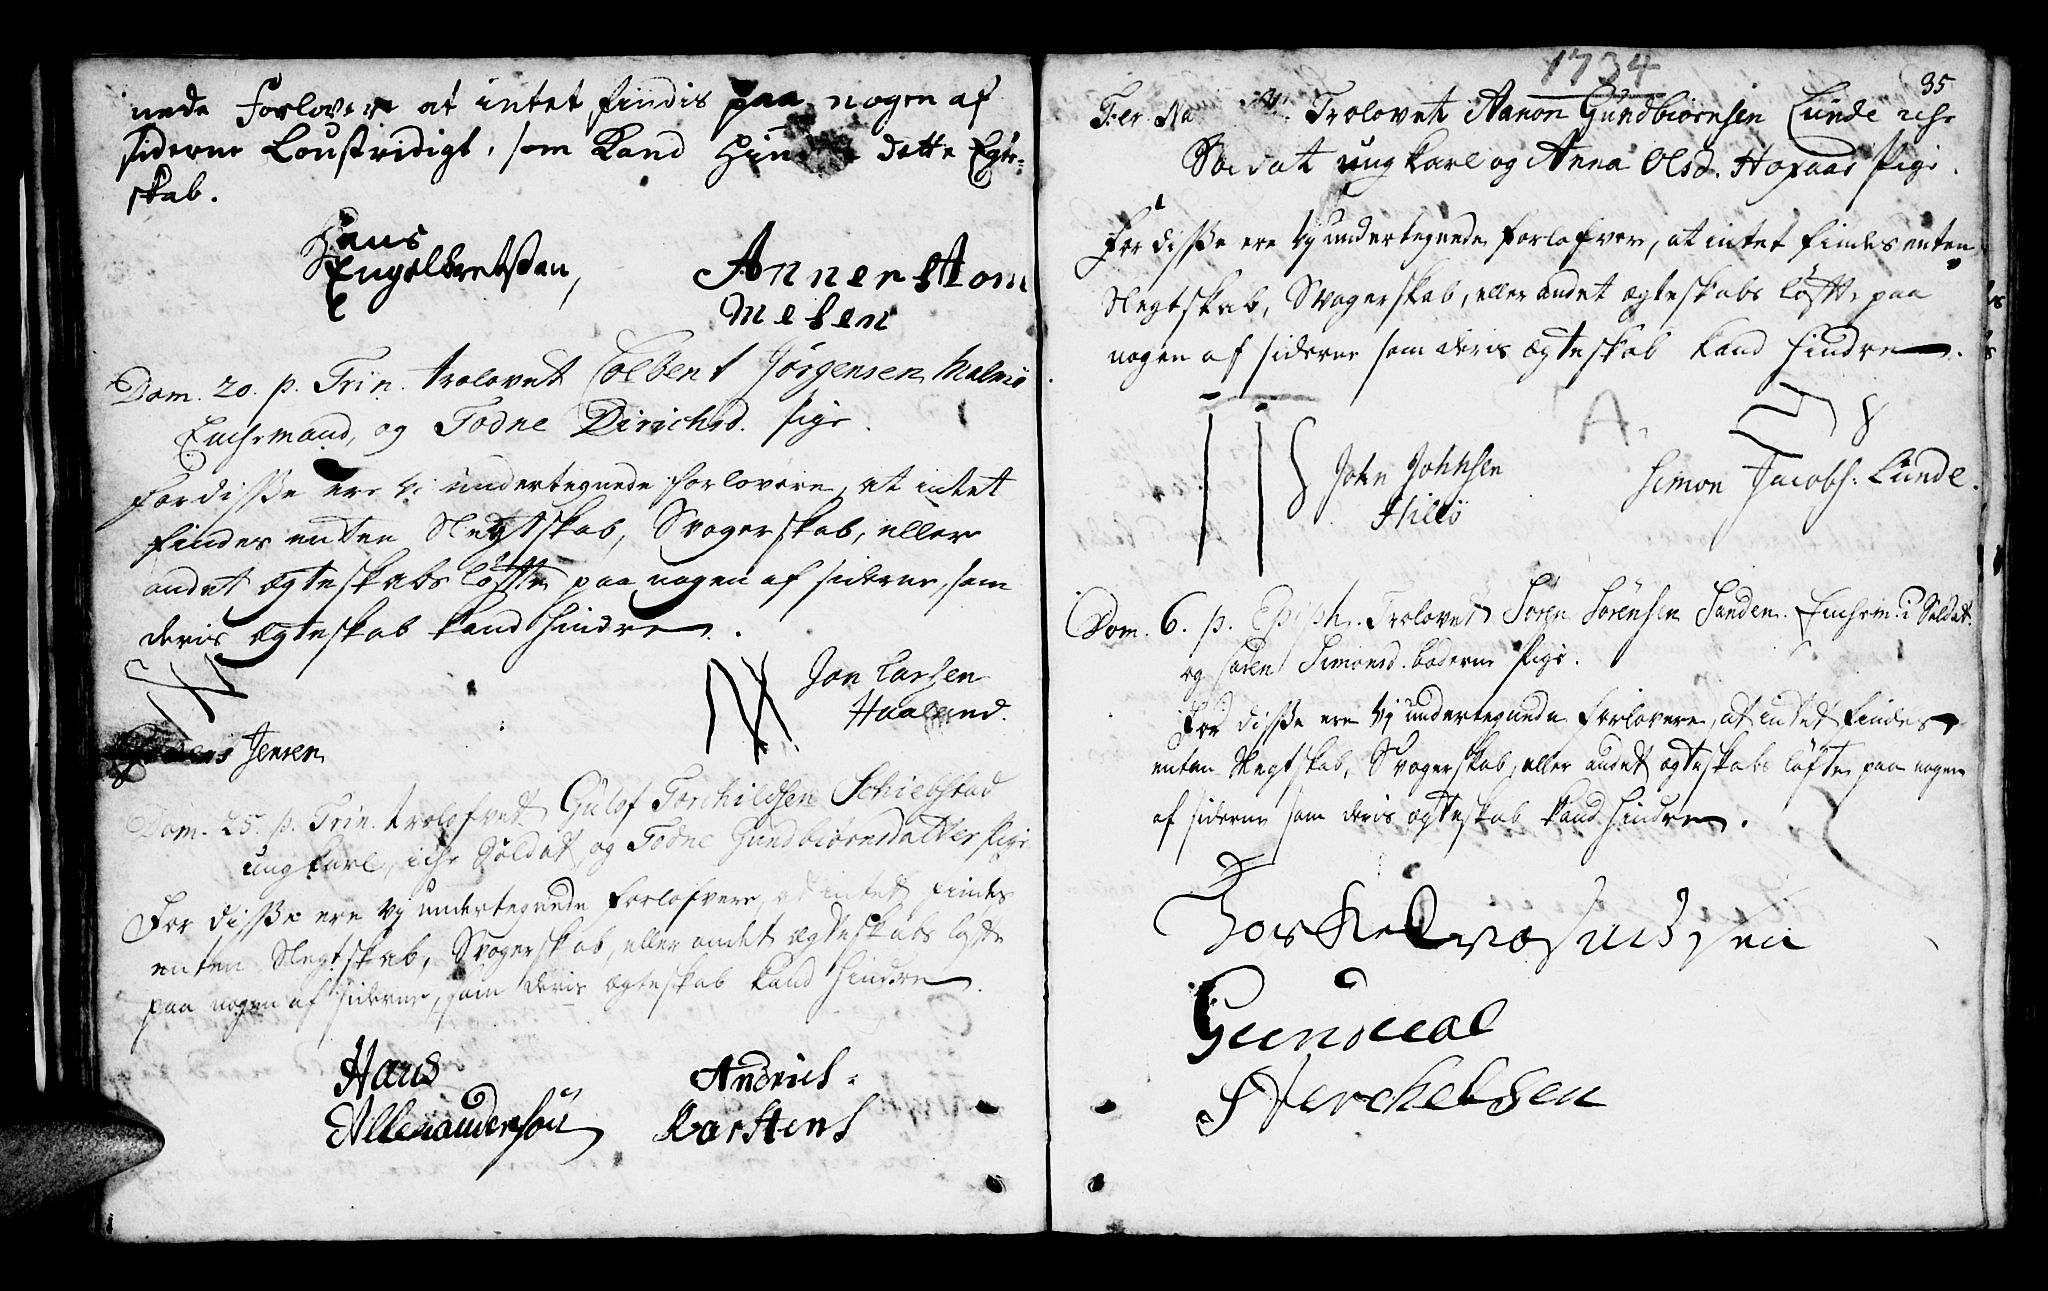 nede Forlovere at intet findis paa nogen af
siderne Loustridigt, som Kand Hindre dette Egte-
skab.
Hans
Engelbretsen,
Anners Tom
mesen
Dom. 20. p. Trin. trolovet Colbent Jörgensen Malmö
Enchemand, og Todne Dirichsd. pige.
For disse ere vi undertegnede forlovere, at intet
findes enten Slegtskab, Svogerskab, eller
andet ægteskabs löfte paa nogen af siderne, som
deris ægteskab kand hindre.
Jon Larsen
Haaland.
Jensen
Dom. 25. p. Trin. trolofvet Gulof Torchildsen Schiebstad
ung karl, iche Soldat, og Todne Gundbiörnsdatter pige
For disse ere vy undertegnede forlofvere, at intet findes
enten Slegtskab, Svogerskab, eller andet ægteskabs löfte
paa nogen af siderne, som deris ægteskab kand hindre.
Hans
Allexandersön
Andries
Karstens
1734
35
Fer. Na Trolovet Aanon Gundbiörnsen Lunde iche
Soldat ung karl og Anna Olsd. Hopaas pige.
For disse ere vy undertegnede forlofvere, at intet findes enten
Slegtskab, Svogerskab, eller andet ægteskabs löfte paa
nogen af siderne som deris ægteskab kand hindre.
A
John Johnsen
Hillö
Simon Jacobs: Lunde.
Dom. 6. p. Epiph. Trolovet Sören Sörensen Sanden. Enchem. i Soldat.
og Karen Simonsd. boderne pige.
For disse ere vy undertegnede forlovere, at intet findes
enten Slegtskab, Svogerskab, eller andet ægteskabs löfte paa nogen
af siderne som deris ægteskab kand hindre.
Torkel
Gundual
Terchelsen